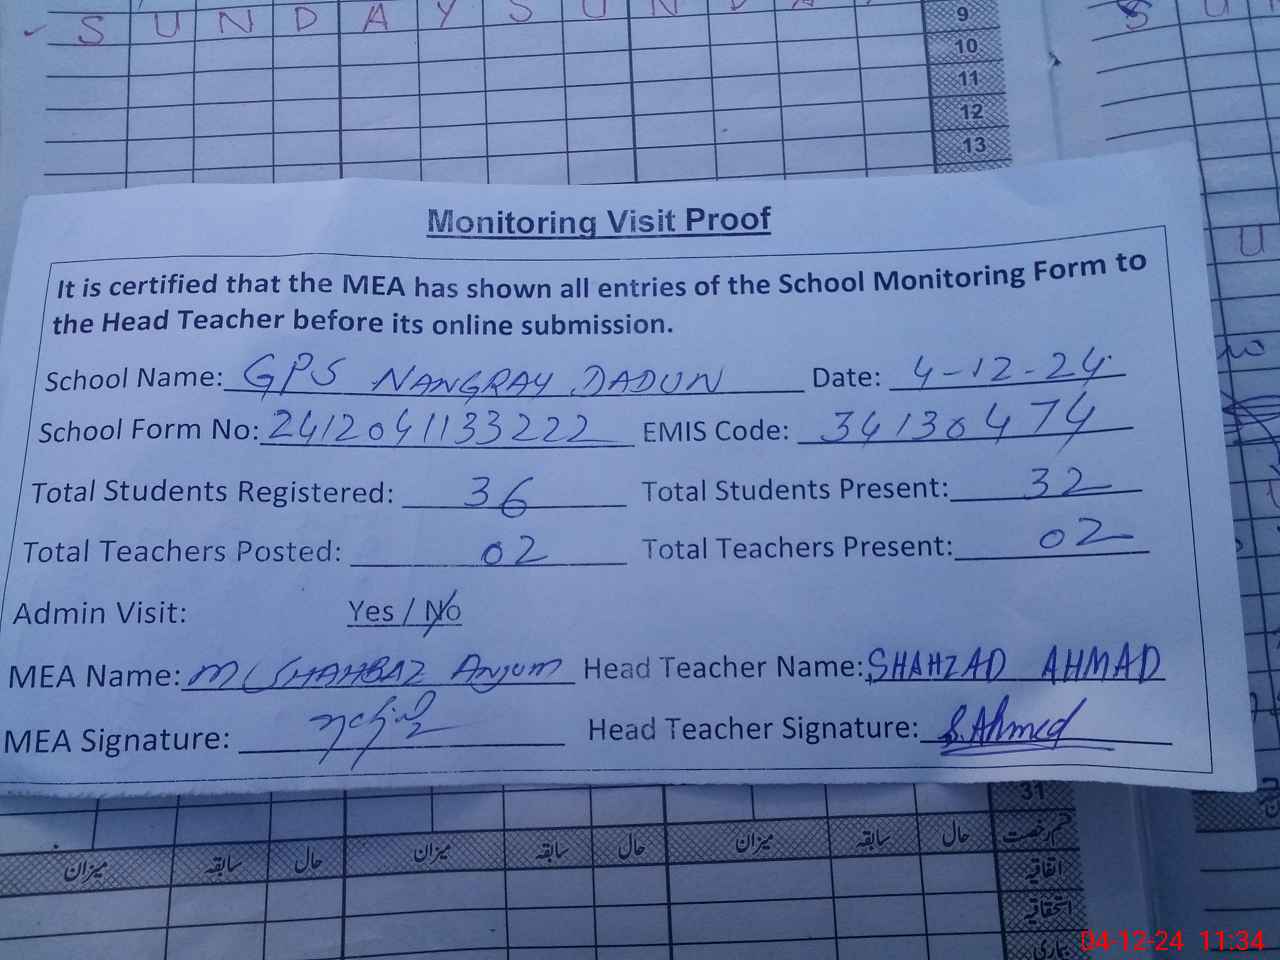 S U N D A Y S U N D A
9
10
11
12
13
Monitoring Visit Proof
It is certified that the MEA has shown all entries of the School Monitoring Form to
the Head Teacher before its online submission.
School Name: GPS NANGRAY DADUN Date: 4-12-24
School Form No: 2412041133222 EMIS Code: 34130474
Total Students Registered: 36 Total Students Present: 32
Total Teachers Posted: 02 Total Teachers Present: 02
Admin Visit: Yes / No
MEA Name: M SHAHBAZ Anjum Head Teacher Name: SHAHZAD AHMAD
MEA Signature: Head Teacher Signature: S.Ahmed
31
میزان سابقہ حال میزان سابقہ حال میزان سابقہ حال قسم رخصت
اتفاقیہ
استحقاقیہ
بیماری
04-12-24 11:34